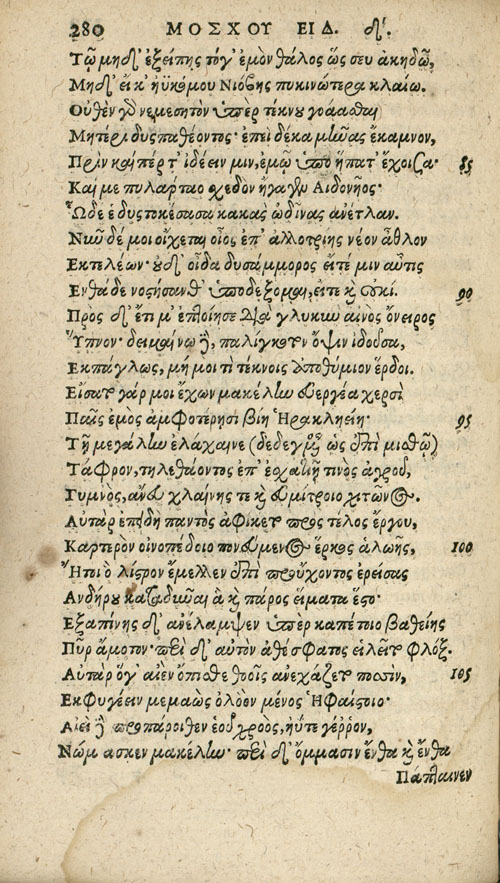 280 ΜΟΣΧΟΥ ΕΙΔ. δ'.
Τῷ μηδ' ἐξείπῃς τόγ' ἐμὸν θάλος ὥς σευ ἀκηδῶ,
Μηδ' εἴ κ' ἠϋκόμου Νιόβης πυκινώτερα κλαίω.
Οὐθὲν γὸ νεμεσητὸν ὑπὲρ τέκνου γοάασθαι
Μητέρι δυσπαθέοντος· ἐπεὶ δέκα μῆνας ἔκαμνον,
Πρὶν καὶ πέρ τ' ἰδέειν μιν, ἐμῷ ὑπὸ ἥπατ' ἔχοισα· 85
Καί με πυλάρταο σχεδὸν ἤγαγεν Αιδονῆος·
Ὧδε ἑ δυστοκέουσα κακὰς ὠδῖνας ἀνέτλαν.
Νῦν δέ μοι οἴχεται οἶος ἐπ' ἀλλοτρίης νέον ἆθλον
Εκτελέων· οὐδ' οἶδα δυσάμμορος εἴτέ μιν αὖτις
Ενθάδε νοστήσανθ' ὑποδέξομαι, εἴτε καὶ οὐκί. 90
Πρὸς δ' ἔτι μ' ἐπτοίησε διὰ γλυκὺν αἰνὸς ὄνειρος
Ὕπνον· δειμαίνω δὲ, παλίγκοτον ὄψιν ἰδοῦσα,
Εκπάγλως, μή μοι τὶ τέκνοις ἀποθύμιον ἕρδοι.
Εἴσατο γάρ μοι ἔχων μακέλην εὐεργέα χερσὶ
Παῖς ἐμὸς ἀμφοτέρῃσι βίη Ἡρακληείη· 95
Τῇ μεγάλην ἐλάχαινε (δεδεγμένος ὡς ἐπὶ μισθῷ)
Τάφρον, τηλεθάοντος ἐπ' ἐσχατιῇ τινος ἀγροῦ,
Γυμνὸς, ἄνευ χλαίνης τε καὶ εὐμίτροιο χιτῶνος.
Αὐτὰρ ἐπειδὴ παντὸς ἀφίκετο πρὸς τέλος ἔργου,
Καρτερὸν οἰνοπέδοιο πονεύμενος ἕρκος ἀλωῆς, 100
Ἤτοι ὁ λίστρον ἔμελλεν ἐπὶ προὔχοντος ἐρείσας
Ανδήρου καταδῦναι ἃ καὶ πάρος εἵματα ἕστο·
Εξαπίνης δ' ἀνέλαμψεν ὑπὲρ καπέτοιο βαθείης
Πῦρ ἄμοτον· περὶ δ' αὐτὸν ἀθέσφατος εἱλεῖτο φλόξ.
Αὐτὰρ ὅγ' αἰὲν ὄπισθε θοοῖς ἀνεχάζετο ποσσὶν, 105
Εκφυγέειν μεμαὼς ὀλοὸν μένος Ἡφαίστοιο·
Αἰεὶ δὲ προπάροιθεν ἑοῦ χροὸς, ἠΰτε γέῤῥον,
Νώμασκεν μακέλην· περὶ δ' ὄμμασιν ἔνθα καὶ ἔνθα
Πάπταινεν